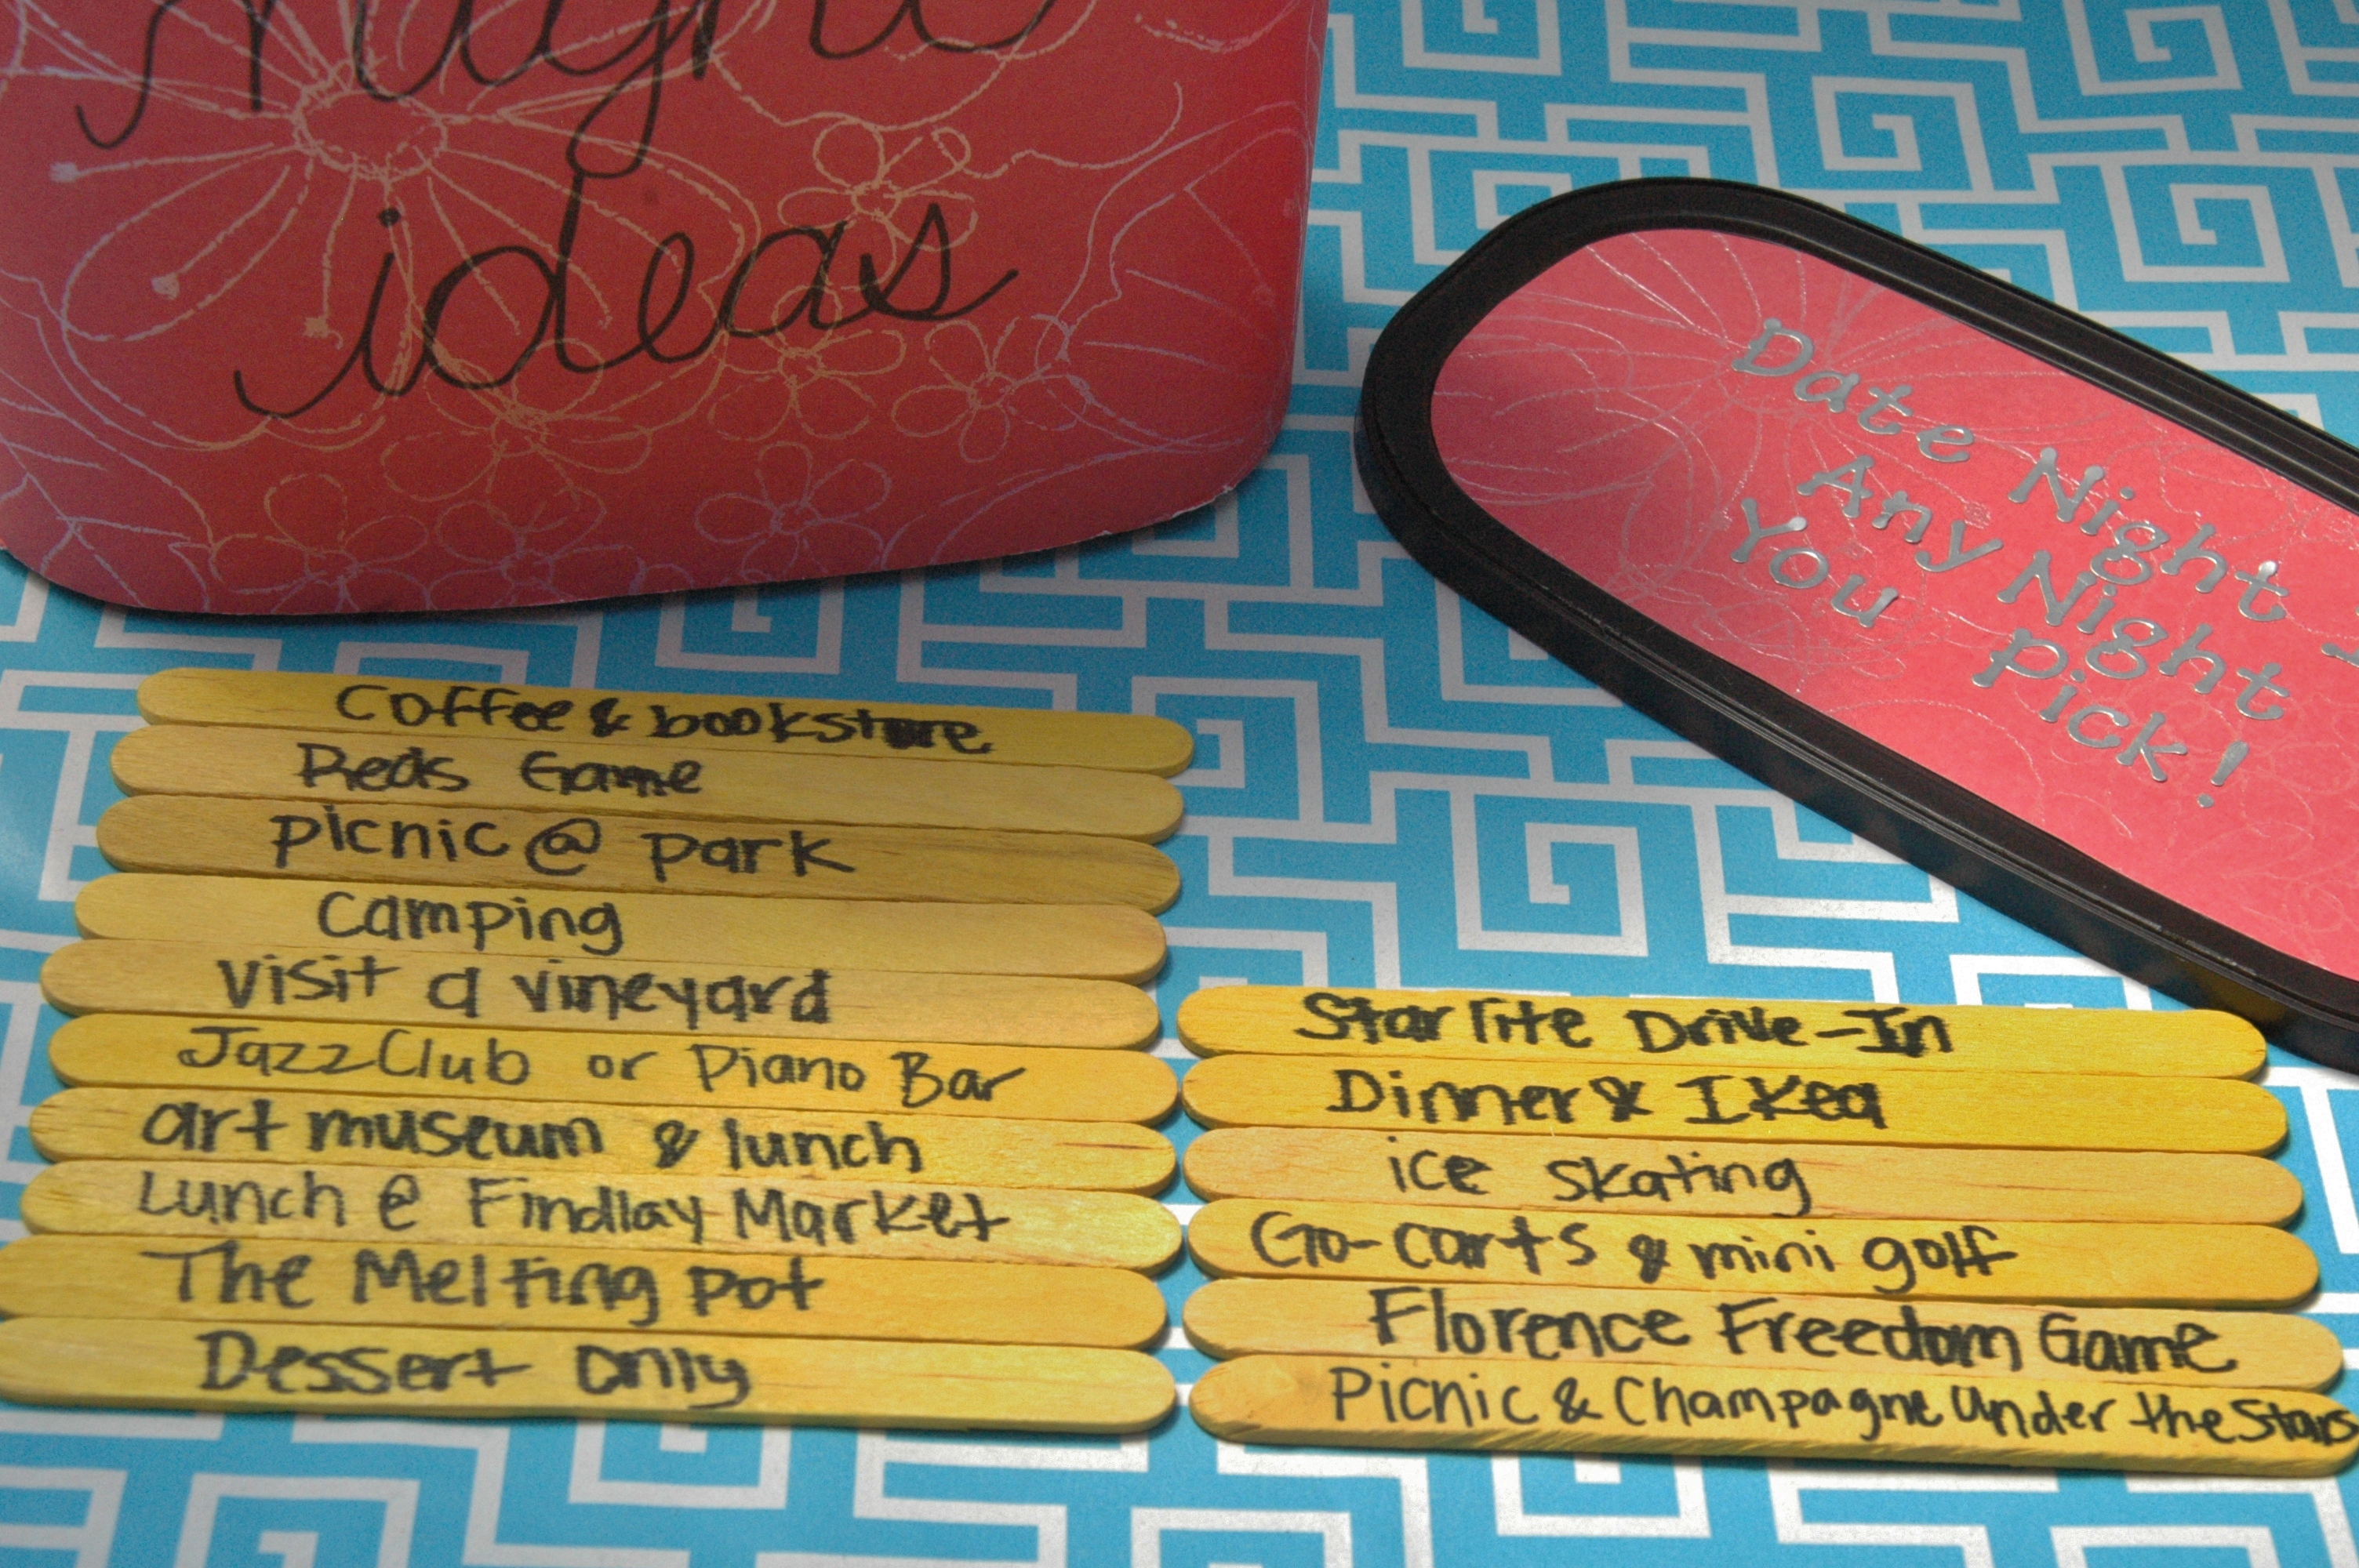 night
ideas
Date Night
Any Night
You Pick!
Coffee & bookstore
Reds Game
Picnic @ park
Camping
Visit a vineyard
Jazz Club or Piano Bar
art museum & lunch
Lunch @ Findlay Market
The Melting Pot
Dessert only
Starlite Drive-In
Dinner & IKea
ice skating
Go-carts & mini golf
Florence Freedom Game
Picnic & Champagne Under the Stars